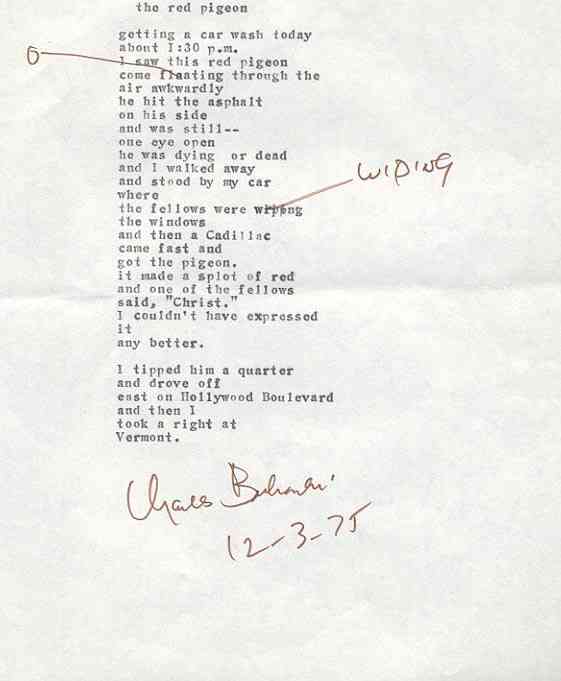 the red pigeon
getting a car wash today
about 1:30 p.m.
O
I saw this red pigeon
come flaating through the
air awkwardly
he hit the asphalt
on his side
and was still--
one eye open
he was dying or dead
and I walked away
WIPING
and stood by my car
where
the fellows were wipping
the windows
and then a Cadillac
came fast and
got the pigeon.
it made a splot of red
and one of the fellows
said, "Christ."
I couldn't have expressed
it
any better.
I tipped him a quarter
and drove off
east on Hollywood Boulevard
and then I
took a right at
Vermont.
Charles Bukowski
12-3-75